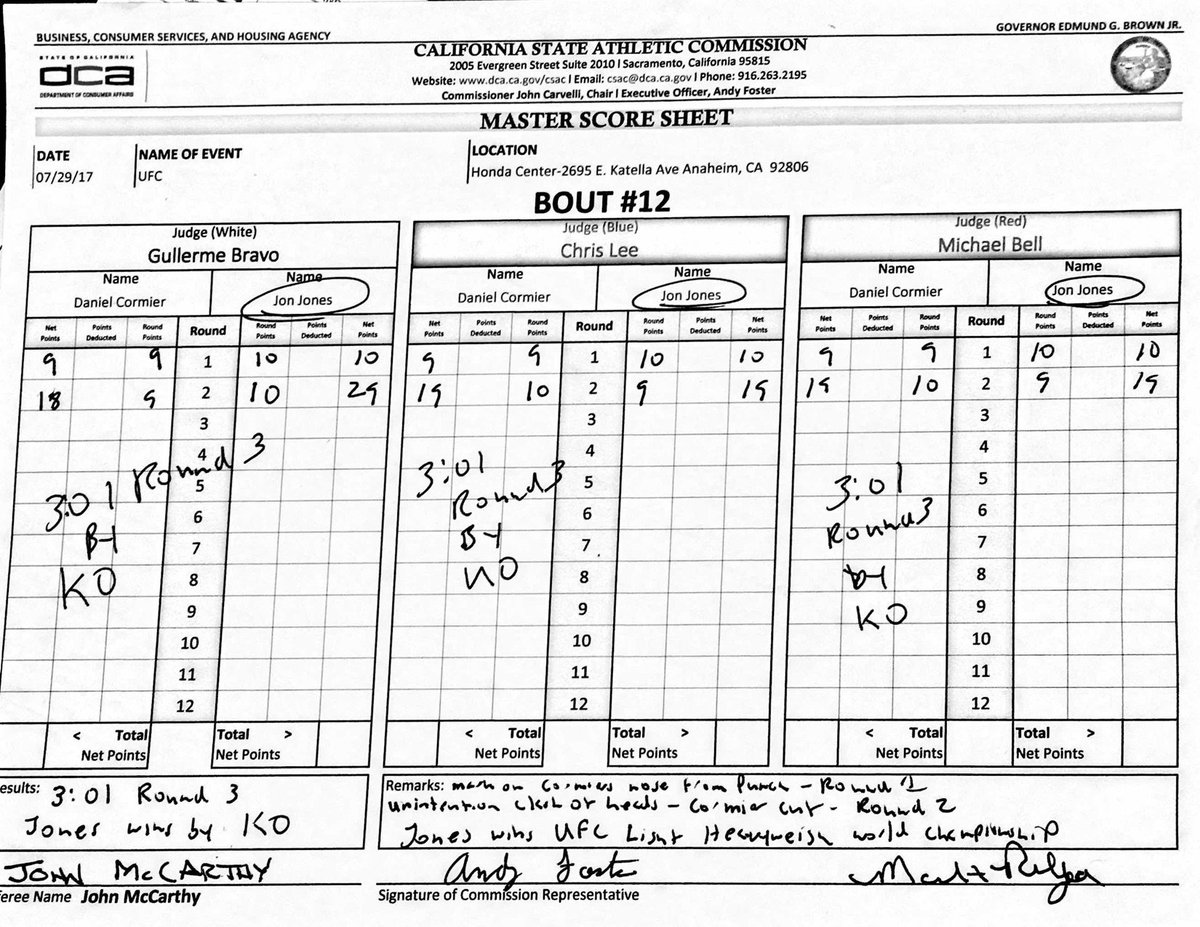 BUSINESS, CONSUMER SERVICES, AND HOUSING AGENCY
GOVERNOR EDMUND G. BROWN JR.
STATE OF CALIFORNIA
dca
DEPARTMENT OF CONSUMER AFFAIRS
CALIFORNIA STATE ATHLETIC COMMISSION
2005 Evergreen Street Suite 2010 | Sacramento, California 95815
Website: www.dca.ca.gov/csac | Email: csac@dca.ca.gov | Phone: 916.263.2195
Commissioner John Carvelli, Chair | Executive Officer, Andy Foster
MASTER SCORE SHEET
DATE
07/29/17
NAME OF EVENT
UFC
LOCATION
Honda Center-2695 E. Katella Ave Anaheim, CA 92806
BOUT #12
Judge (White)
Gullerme Bravo
Name Name
Daniel Cormier Jon Jones
Net Points Points Deducted Round Points Round Round Points Points Deducted Net Points
9 9 1 10 10
18 9 2 10 29
3
4
5
6
7
8
9
10
11
12
3:01 Round 3
By
KO
< Total Total >
Net Points Net Points
Judge (Blue)
Chris Lee
Name Name
Daniel Cormier Jon Jones
Net Points Points Deducted Round Points Round Round Points Points Deducted Net Points
9 9 1 10 10
19 10 2 9 19
3
4
5
6
7
8
9
10
11
12
3:01
Round 3
By
KO
< Total Total >
Net Points Net Points
Judge (Red)
Michael Bell
Name Name
Daniel Cormier Jon Jones
Net Points Points Deducted Round Points Round Round Points Points Deducted Net Points
9 9 1 10 10
19 10 2 9 19
3
4
5
6
7
8
9
10
11
12
3:01
Round 3
by
KO
< Total Total >
Net Points Net Points
esults: 3:01 Round 3
Jones wins by KO
Remarks: mark on Cormiers nose from Punch - Round 1
unintention clash of heads - Cormier cut - Round 2
Jones wins UFC Light Heavyweigh world championship
JOHN McCARTHY
feree Name John McCarthy
Andy Foster
Signature of Commission Representative